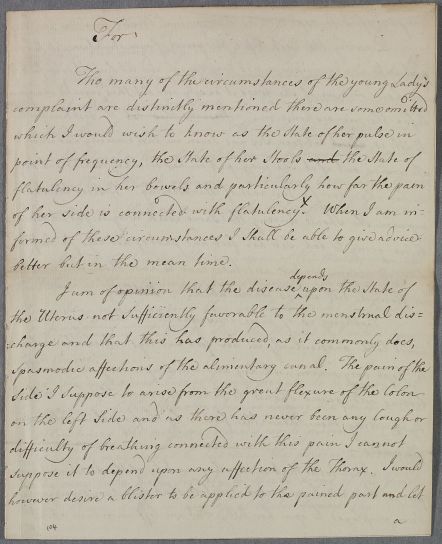 For
Tho many of the circumstances of the young Lady's
complaint are distinctly mentioned there are some omitted
which I would wish to know as the State of her pulse in
point of frequency, the State of her Stools and the State of
flatulency in her bowels and particularly how far the pain
of her side is connected with flatulency. x When I am in-
formed of these circumstances I shall be able to give advice
better but in the mean time.
I am of opinion that the disease depends upon the State of
the Uterus not sufficiently favorable to the menstrual dis-
:charge and that this has produced, as it commonly does,
spasmodic affections of the alimentary canal. The pain of the
Side I suppose to arise from the great flexure of the Colon
on the left Side and as there has never been any Cough or
difficulty of breathing connected with this pain I cannot
suppose it to depend upon any affection of the Thorax. I would
however desire a blister to be applied to the pained part and let
104
a